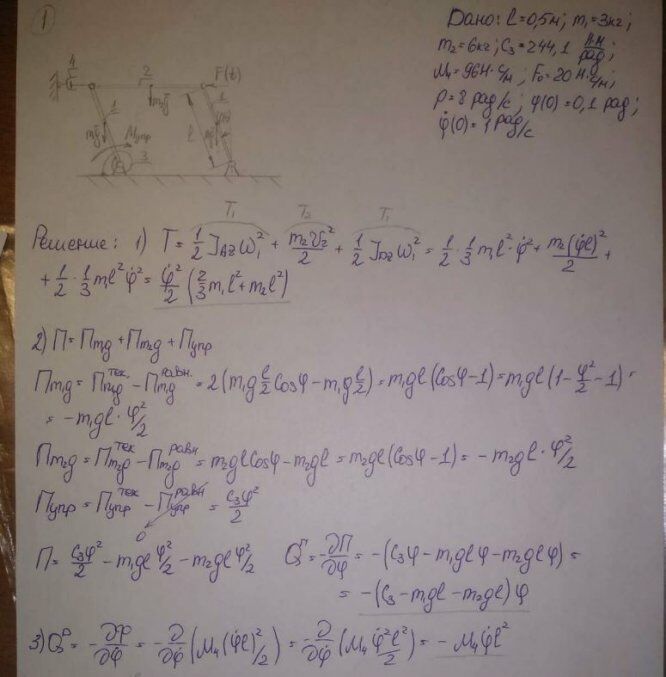 1
Дано: l=0,5м; m₁=3кг;
m₂=6кг; C₃=244,1 Нм/рад;
μ₄=96Н·с/м; F₀=20Н·с/м;
p=8 рад/с; φ(0)=0,1 рад;
φ̇(0)=1 рад/с
4 2 F(t)
1 m₂g̅ l 1
m₁g̅ Mупр
3
T₁ T₂ T₁
Решение: 1) T = 1/2 J_AZ ω₁² + m₂V₂²/2 + 1/2 J_DZ ω₁² = 1/2 · 1/3 m₁l² · φ̇² + m₂(φ̇l)²/2 +
+ 1/2 · 1/3 m₁l² φ̇² = φ̇²/2 (2/3 m₁l² + m₂l²)
2) П = Пm₁g + Пm₂g + Пупр
Пm₁g = Пm₁g^тек. - Пm₁g^равн. = 2(m₁g l/2 Cosφ - m₁g l/2) = m₁gl(Cosφ-1) = m₁gl(1 - φ²/2 - 1) =
= -m₁gl · φ²/2
Пm₂g = Пm₂g^тек - Пm₂g^равн = m₂glCosφ - m₂gl = m₂gl(Cosφ-1) = -m₂gl · φ²/2
Пупр = Пупр^тек - Пупр^равн = C₃φ²/2
0
П = C₃φ²/2 - m₁gl φ²/2 - m₂gl φ²/2 Q^П = -∂П/∂φ = -(C₃φ - m₁glφ - m₂glφ) =
= -(C₃ - m₁gl - m₂gl)φ
3) Q^Ф = -∂Ф/∂φ̇ = -∂/∂φ̇ (μ₄(φ̇l)²/2) = -∂/∂φ̇ (μ₄ φ̇²l²/2) = -μ₄φ̇l²